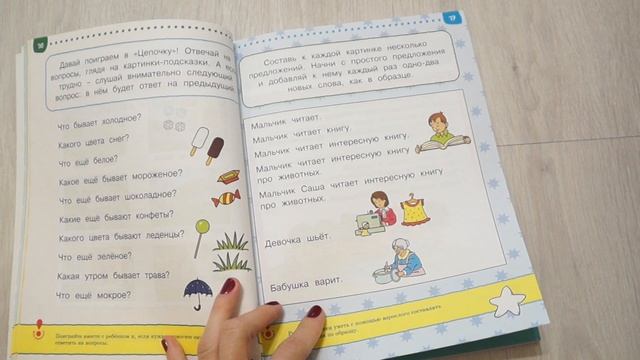 16
Давай поиграем в «Цепочку»! Отвечай на
вопросы, глядя на картинки-подсказки. А
трудно – слушай внимательно следующий
вопрос: в нём будет ответ на предыдущий
Что бывает холодное?
Какого цвета снег?
Что ещё белое?
Какое ещё бывает мороженое?
Что ещё бывает шоколадное?
Какие ещё бывают конфеты?
Какого цвета бывают леденцы?
Что ещё зелёное?
Какая утром бывает трава?
Что ещё мокрое?
Поиграйте вместе с ребёнком и, если
ответить на вопросы.
17
Составь к каждой картинке несколько
предложений. Начни с простого предложения
и добавляй к нему каждый раз одно-два
новых слова, как в образце.
Мальчик читает.
Мальчик читает книгу.
Мальчик читает интересную книгу.
Мальчик читает интересную книгу
про животных.
Мальчик Саша читает интересную книгу
про животных.
Девочка шьёт.
Бабушка варит.
уметь с помощью взрослого составлять
по образцу.